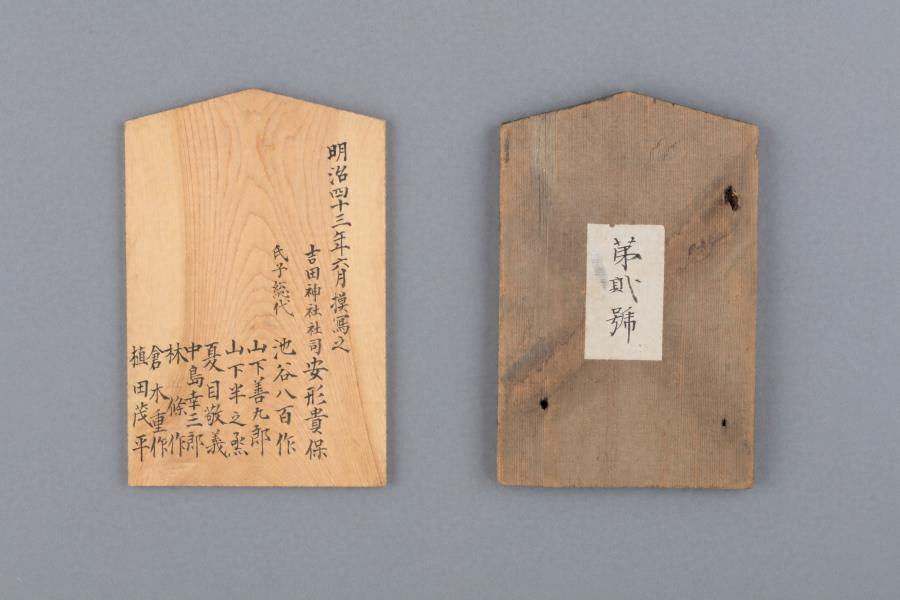 明治四十三年六月摸寫之
吉田神社社司安形貴保
氏子総代 池谷八百作
山下善九郎
山下半之丞
夏目敬義
中島幸三郎
林條作
倉木重作
植田茂平
第貳號